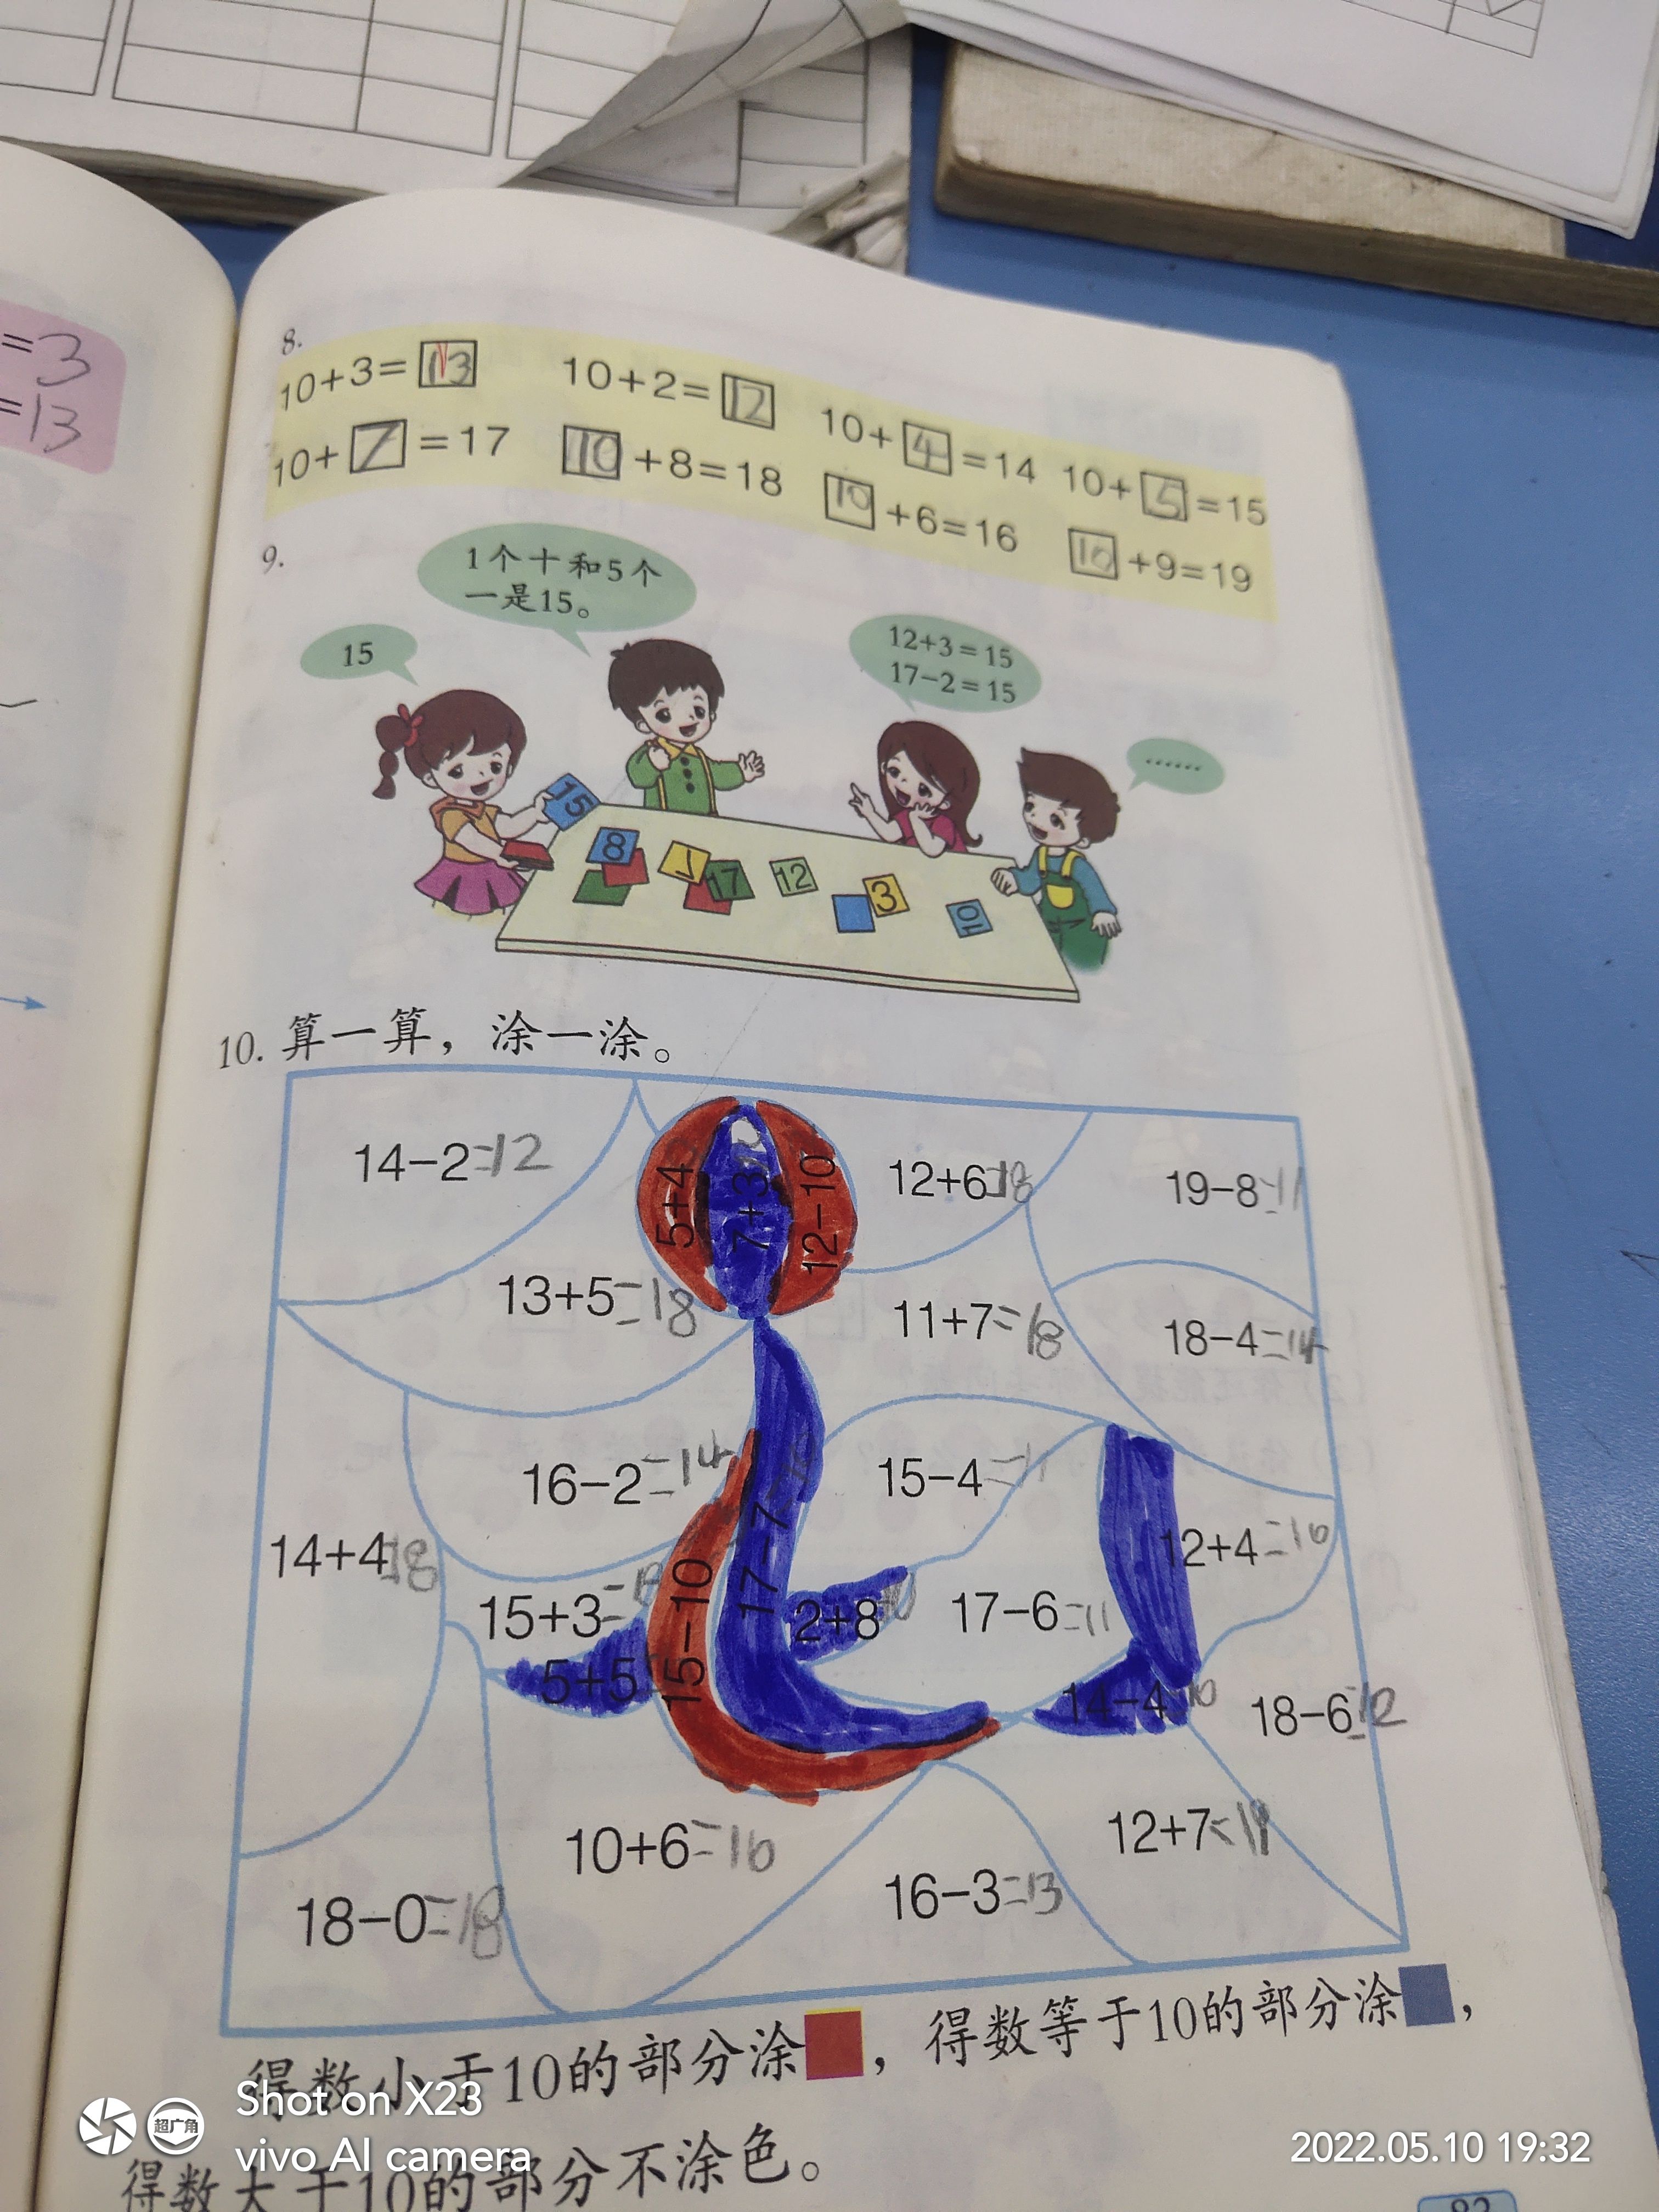 =3
=13
8.
10+3=13 10+2=12 10+4=14 10+5=15
10+7=17 10+8=18 10+6=16 10+9=19
9.
1个十和5个
一是15。
15
12+3=15
17-2=15
......
15
8
17
12
3
10
10. 算一算，涂一涂。
14-2=12
5+4
7+3
12-10
12+6=18
19-8=11
13+5=18
11+7=18
18-4=14
16-2=14
15-4=11
14+4=18
12+4=16
15+3=18
15-10
17-7
2+8=10
17-6=11
5+5
14-4=10
18-6=12
10+6=16
12+7=19
16-3=13
18-0=18
得数小于10的部分涂，得数等于10的部分涂，
得数大于10的部分不涂色。
Shot on X23
超广角
vivo AI camera
2022.05.10 19:32